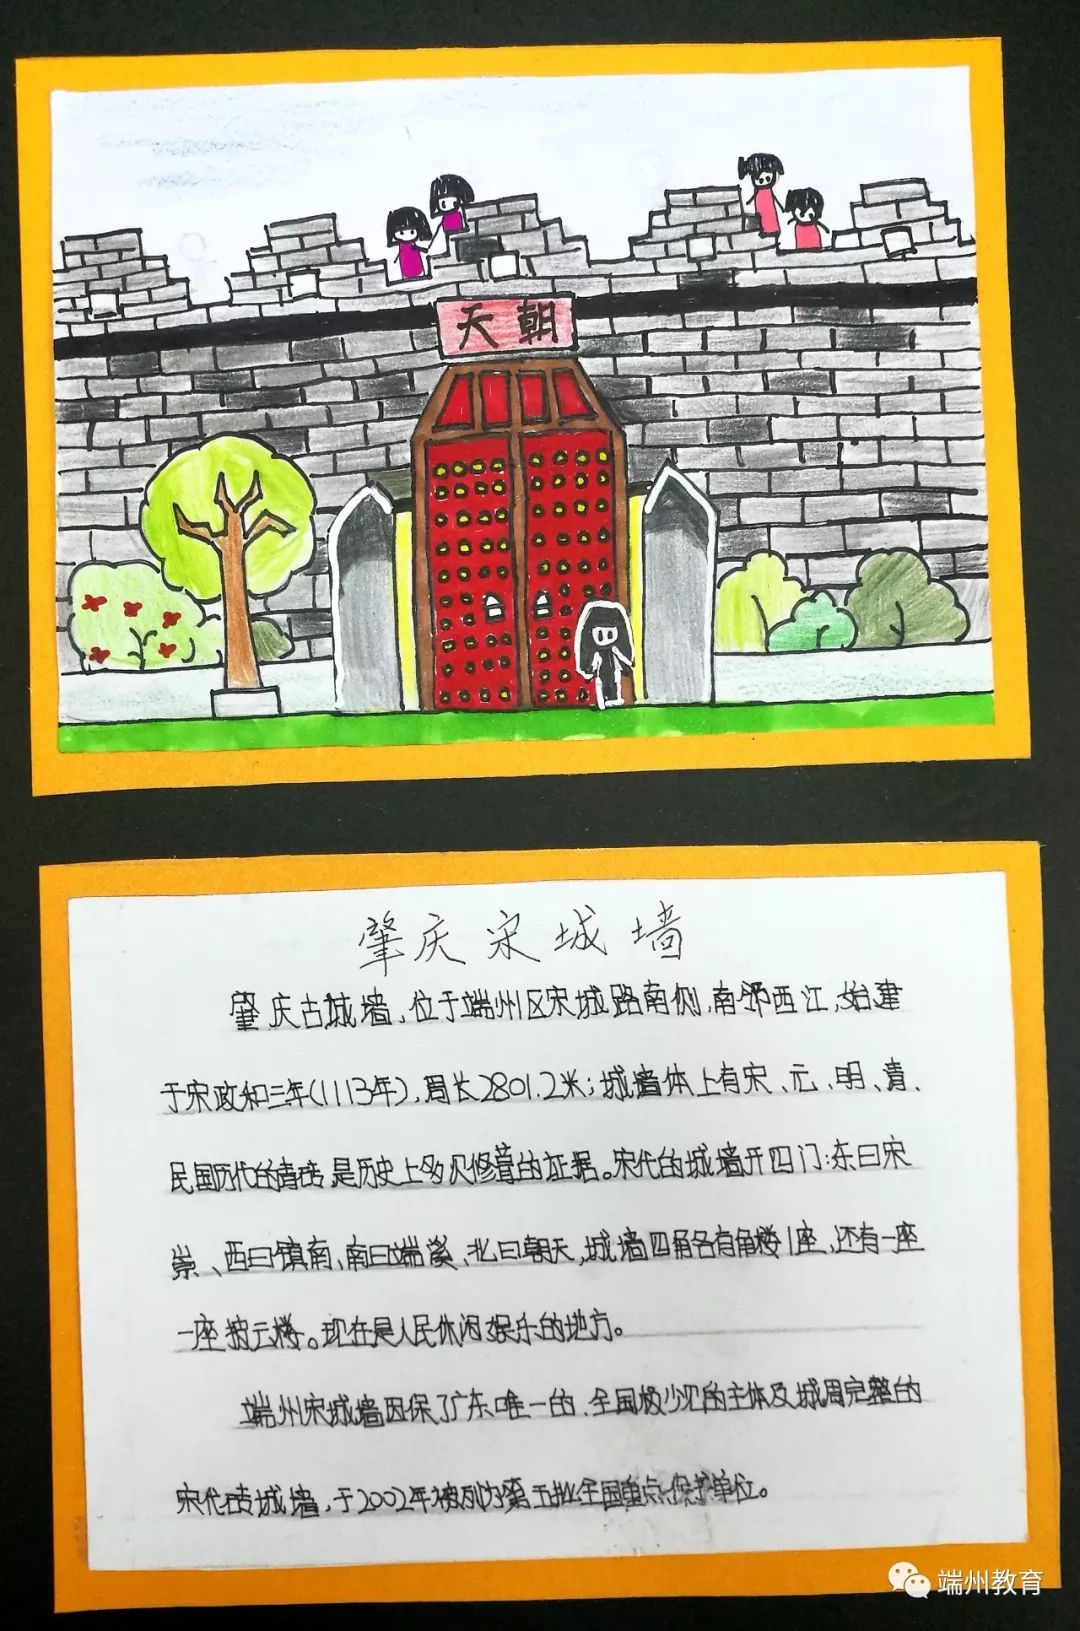 天朝
肇庆宋城墙
肇庆古城墙,位于端州区宋城路南侧,南邻西江,始建
于宋政和三年(1113年),周长2801.2米;城墙体上有宋、元、明、清、
民国历代的青砖,是历史上多次修葺的证据。宋代的城墙开四门:东曰宋
崇、西曰镇南、南曰端溪、北曰朝天,城墙四角各有角楼1座,还有一座
一座披云楼。现在是人民休闲娱乐的地方。
端州宋城墙因保了广东唯一的、全国极少见的主体及城周完整的
宋代砖城墙,于2002年被列为第五批全国重点保护单位。
端州教育